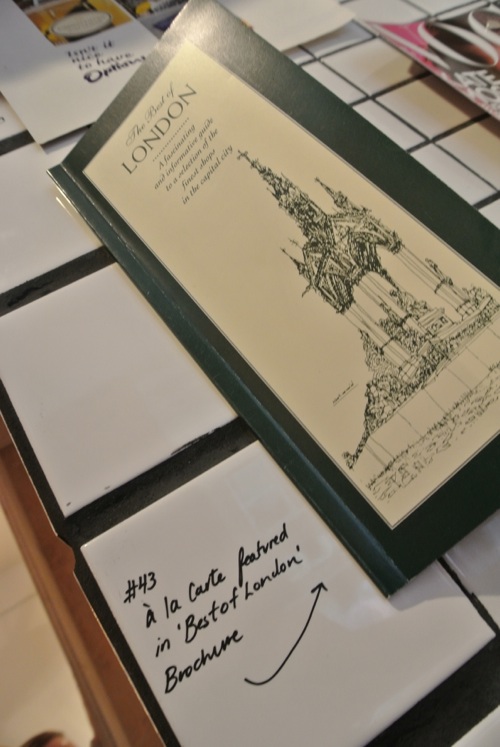 love it
nice
to have
Options
The Best of
LONDON
A fascinating
and informative guide
to a selection of the
finest shops
in the capital city
#43
à la Carte featured
in 'Best of London'
Brochure